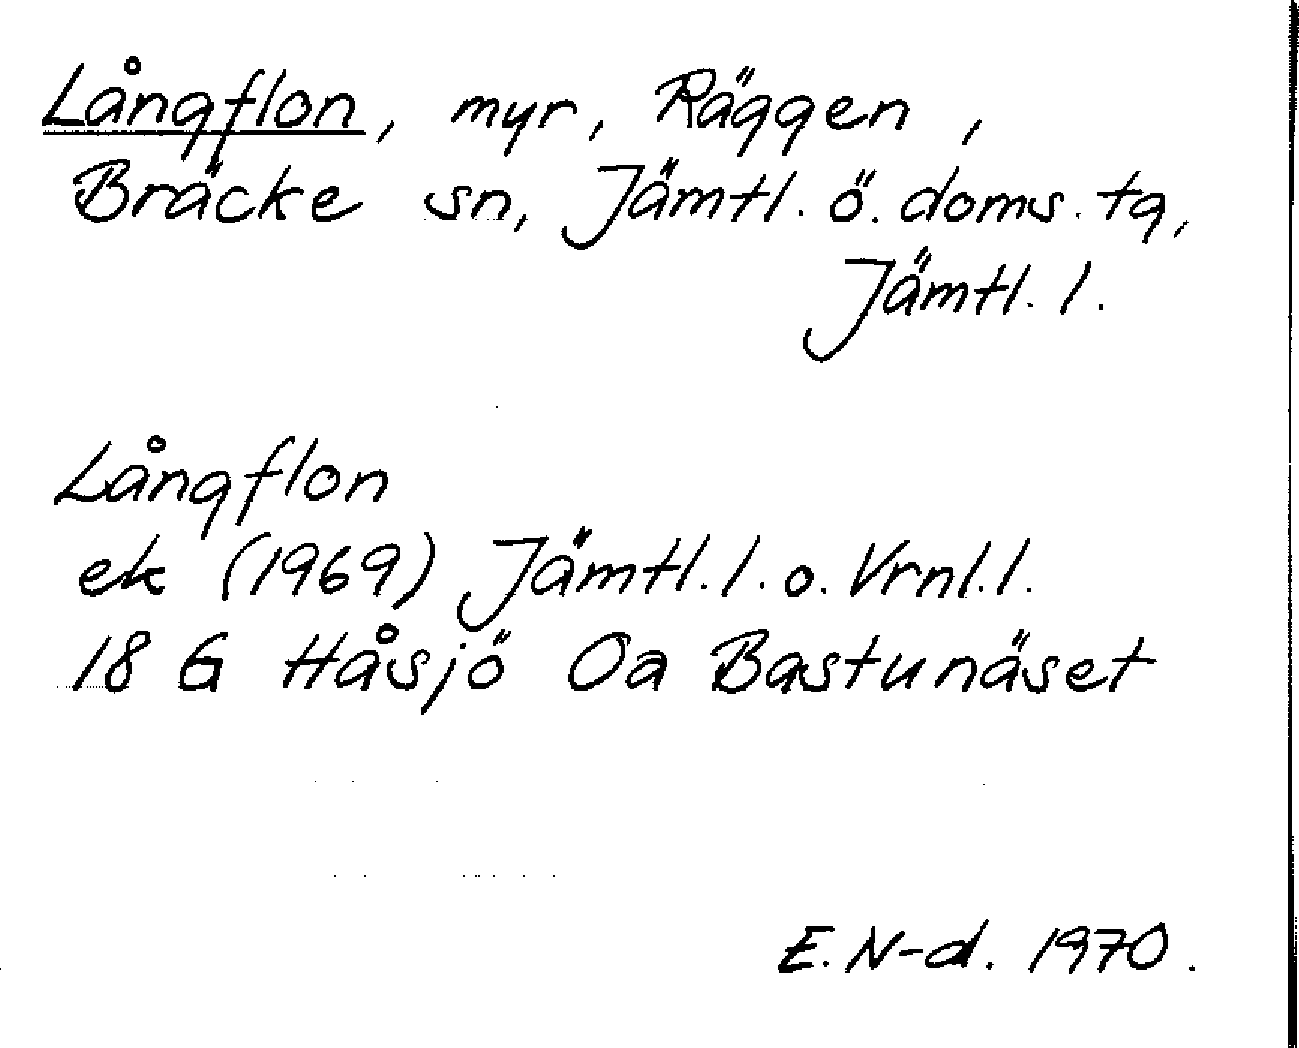 Långflon, myr, Räggen,
Bräcke sn, Jämtl. ö. doms. tg,
Jämtl. l.
Långflon
ek (1969) Jämtl. l. o. Vrnl. l.
18 G Håsjö Oa Bastunäset
E. N-d. 1970.